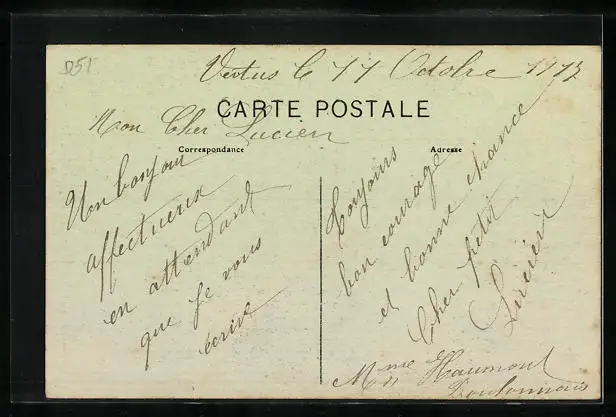 D51
Vertus le 17 Octobre 1917
CARTE POSTALE
Mon Cher Lucien
Correspondance
Adresse
Un bonjour
affectueux
en attendant
que je vous
écrive
Toujours
bon courage
et bonne chance
Cher petit
Lucien
Mme Haumont